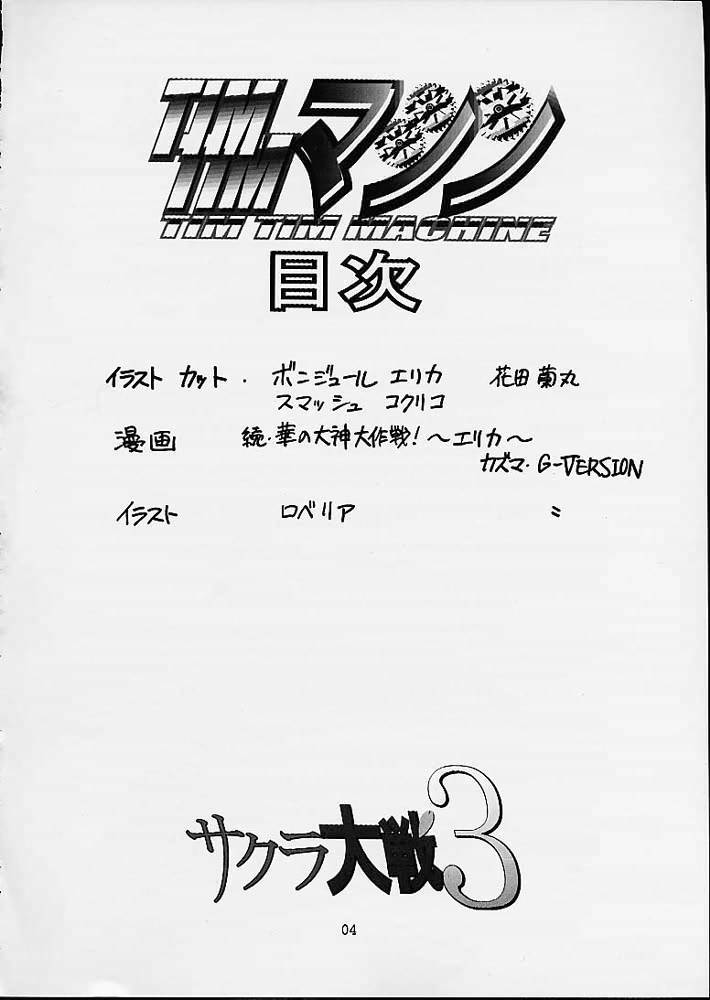 TIM
TIMマシン
TIM TIM MACHINE
目次
イラスト カット・ ボンジュール エリカ 花田蘭丸
スマッシュ コクリコ
漫画 続・華の大神大作戦!～エリカ～
カズマ・G-VERSION
イラスト ロベリア 〃
サクラ大戦3
04